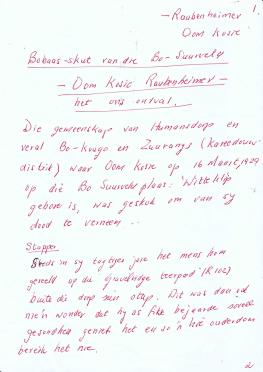 1
- Raubenheimer
Oom Kosie
Bobaas-skut van die Bo-Suurveld
- Oom Kosie Raubenheimer -
het ons ontval.
Die gemeenskap van Humansdorp en
veral Bo-Kouga en Zuuranys (Kareedouw-
distrik) waar Oom Kosie op 16 Maart, 1929
op die Bo Suurveld plaas: Witteklip
gebore is, was geskok om van sy
dood te verneem.
Stapper
Steeds in sy sestiger jare het mens hom
gereeld op die teerpad (R102)
buite die dorp sien stap. Dit was dan ook
nie 'n wonder dat hy as fikse bejaarde soveel
gesondheid geniet het en so 'n hoë ouderdom
bereik het nie.